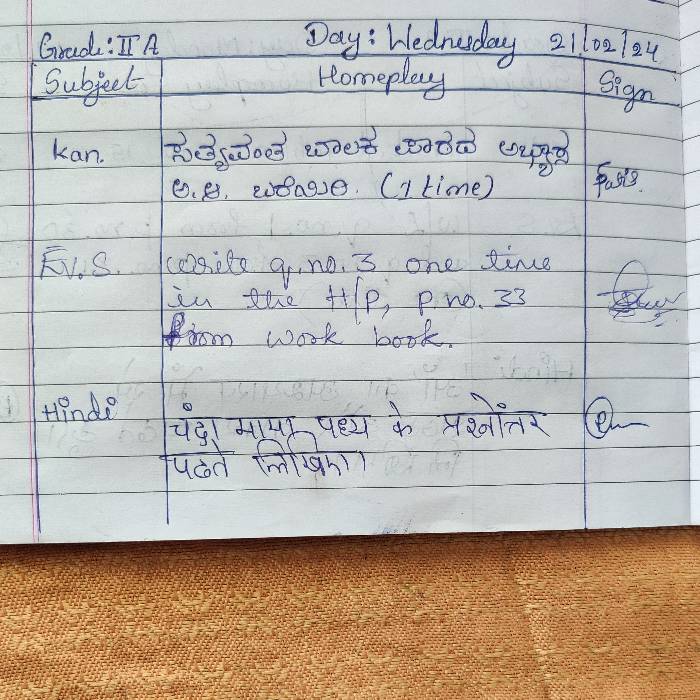 Grade: II A Day: Wednesday 21/02/24
Subject Homeplay Sign
Kan. ಸತ್ಯವಂತ ಬಾಲಕ ಪಾಠದ ಅಭ್ಯಾಸ
ಅ.ಆ. ಬರೆಯಿರಿ. (1 time)
EV.S. Write q.no.3 one time
in the H/P, p.no. 33
from work book.
Hindi चंदा मामा पध्य के प्रश्नोंत्तर
पढते लिखिए।